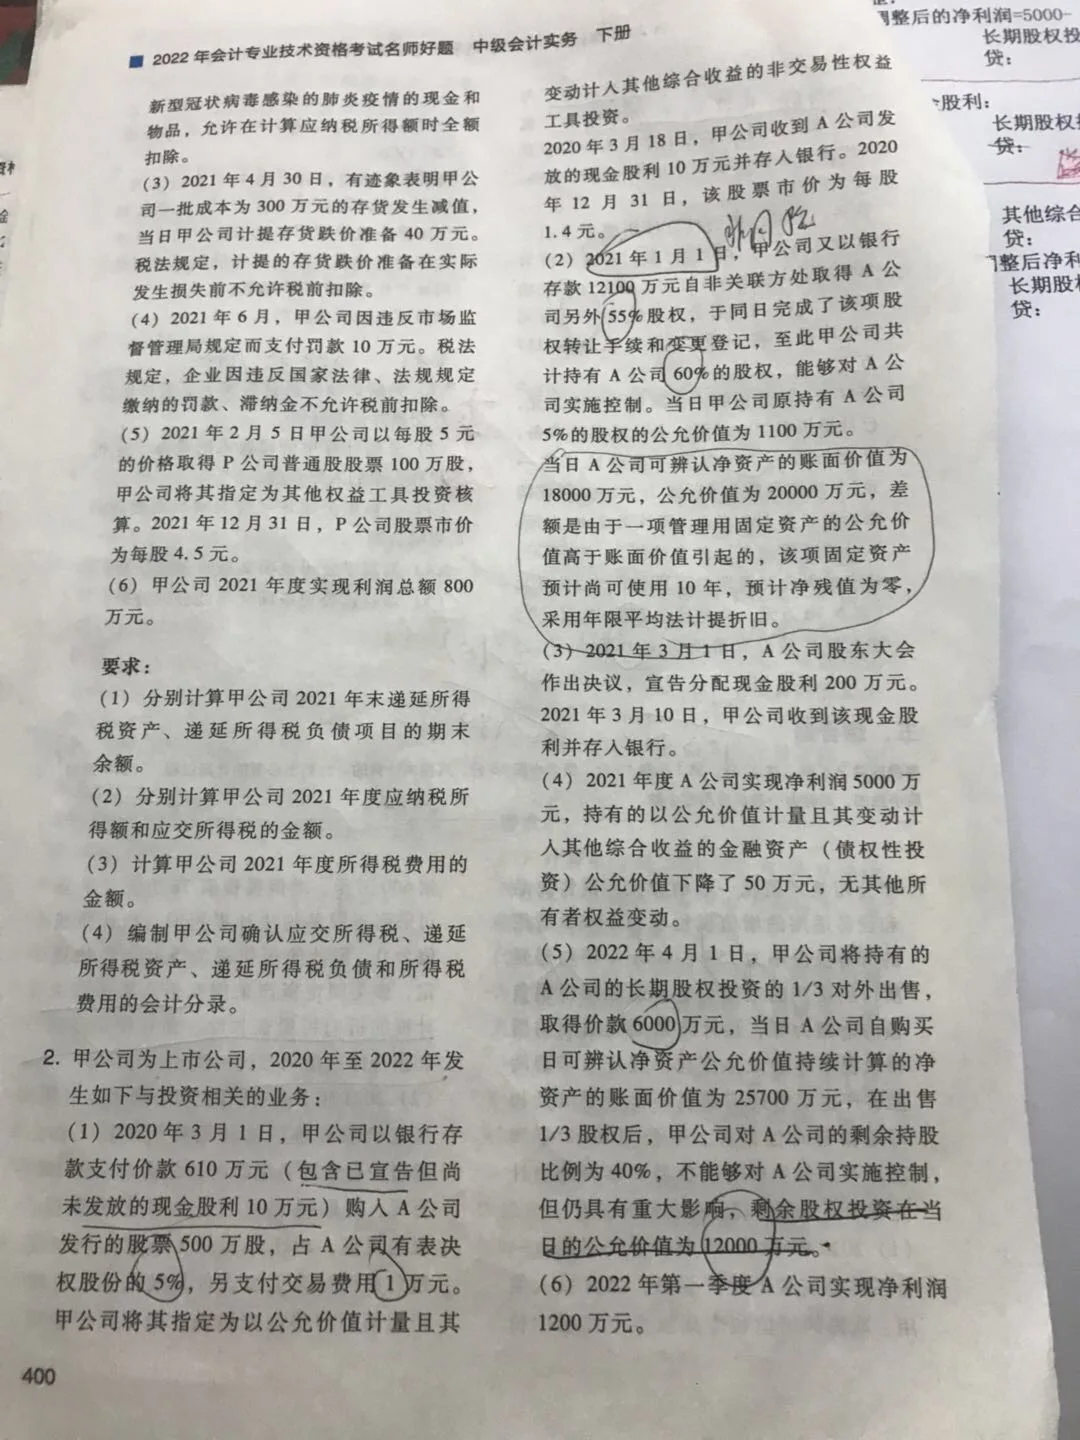 ■ 2022年会计专业技术资格考试名师好题 中级会计实务 下册
新型冠状病毒感染的肺炎疫情的现金和
物品，允许在计算应纳税所得额时全额
扣除。
(3) 2021年4月30日，有迹象表明甲公
司一批成本为300万元的存货发生减值，
当日甲公司计提存货跌价准备40万元。
税法规定，计提的存货跌价准备在实际
发生损失前不允许税前扣除。
(4) 2021年6月，甲公司因违反市场监
督管理局规定而支付罚款10万元。税法
规定，企业因违反国家法律、法规规定
缴纳的罚款、滞纳金不允许税前扣除。
(5) 2021年2月5日甲公司以每股5元
的价格取得P公司普通股股票100万股，
甲公司将其指定为其他权益工具投资核
算。2021年12月31日，P公司股票市价
为每股4.5元。
(6) 甲公司2021年度实现利润总额800
万元。
要求：
(1) 分别计算甲公司2021年末递延所得
税资产、递延所得税负债项目的期末
余额。
(2) 分别计算甲公司2021年度应纳税所
得额和应交所得税的金额。
(3) 计算甲公司2021年度所得税费用的
金额。
(4) 编制甲公司确认应交所得税、递延
所得税资产、递延所得税负债和所得税
费用的会计分录。
2. 甲公司为上市公司，2020年至2022年发
生如下与投资相关的业务：
(1) 2020年3月1日，甲公司以银行存
款支付价款610万元（包含已宣告但尚
未发放的现金股利10万元）购入A公司
发行的股票500万股，占A公司有表决
权股份的5%，另支付交易费用1万元。
甲公司将其指定为以公允价值计量且其
400
变动计入其他综合收益的非交易性权益
工具投资。
2020年3月18日，甲公司收到A公司发
放的现金股利10万元并存入银行。2020
年12月31日，该股票市价为每股
1.4元。
(2) 2021年1月1日，甲公司又以银行
存款12100万元自非关联方处取得A公
司另外55%股权，于同日完成了该项股
权转让手续和变更登记，至此甲公司共
计持有A公司60%的股权，能够对A公
司实施控制。当日甲公司原持有A公司
5%的股权的公允价值为1100万元。
当日A公司可辨认净资产的账面价值为
18000万元，公允价值为20000万元，差
额是由于一项管理用固定资产的公允价
值高于账面价值引起的，该项固定资产
预计尚可使用10年，预计净残值为零，
采用年限平均法计提折旧。
(3) 2021年3月1日，A公司股东大会
作出决议，宣告分配现金股利200万元。
2021年3月10日，甲公司收到该现金股
利并存入银行。
(4) 2021年度A公司实现净利润5000万
元，持有的以公允价值计量且其变动计
入其他综合收益的金融资产（债权性投
资）公允价值下降了50万元，无其他所
有者权益变动。
(5) 2022年4月1日，甲公司将持有的
A公司的长期股权投资的1/3对外出售，
取得价款6000万元，当日A公司自购买
日可辨认净资产公允价值持续计算的净
资产的账面价值为25700万元，在出售
1/3股权后，甲公司对A公司的剩余持股
比例为40%，不能够对A公司实施控制，
但仍具有重大影响，剩余股权投资在当
日的公允价值为12000万元。
(6) 2022年第一季度A公司实现净利润
1200万元。
调整后的净利润=5000-
长期股权投
贷：
股利：
长期股权
贷：
其他综合
贷：
调整后净利
长期股权
贷：